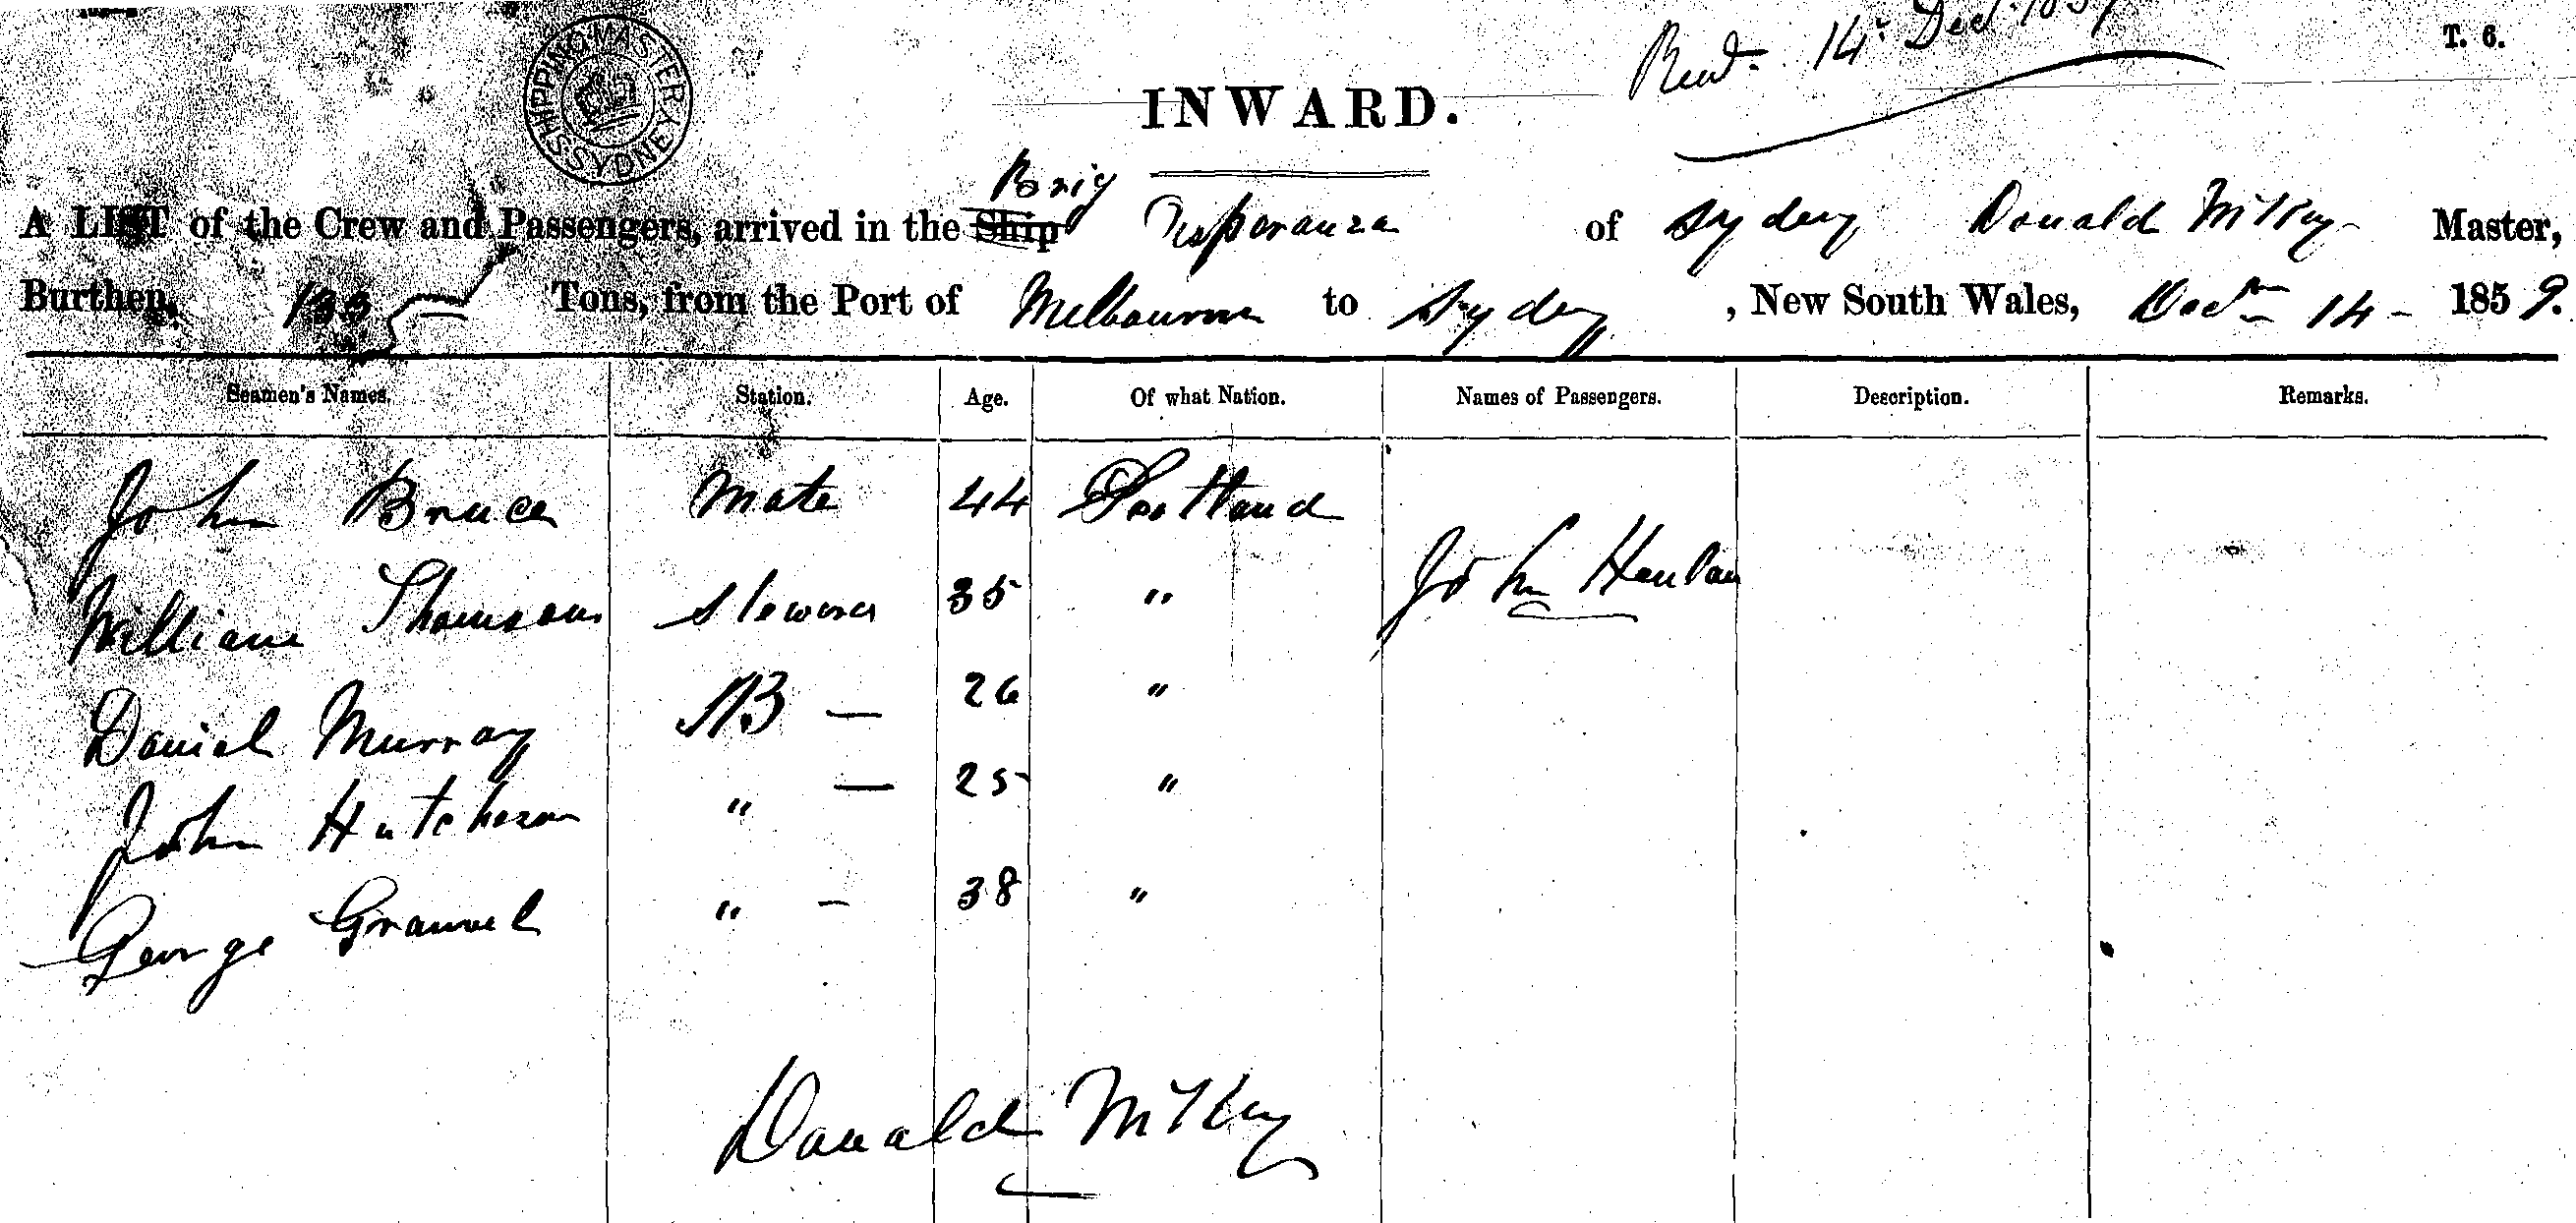 SHIPPING MASTER
SYDNEY
Recd. 14 Dec. 1859
T. 6.
INWARD.
Brig
A LIST of the Crew and Passengers, arrived in the Ship Esperanza of Sydney Donald McKay Master,
Burthen, Tons, from the Port of Melbourne to Sydney, New South Wales, Decr 14 - 1859.
Seamen's Names. Station. Age. Of what Nation. Names of Passengers. Description. Remarks.
John Bruce Mate 44 Scotland
William Thomson Steward 35 " John Henlan
Daniel Murray AB — 26 "
John Hutcheson " — 25 "
George " – 38 "
Donald McKay